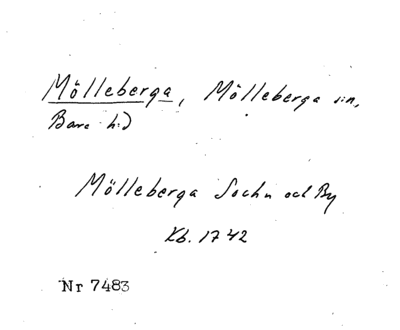 Mölleberga, Mölleberga sn,
Bara hd
Mölleberga Sochn och By
Kb. 1742
Nr 7483